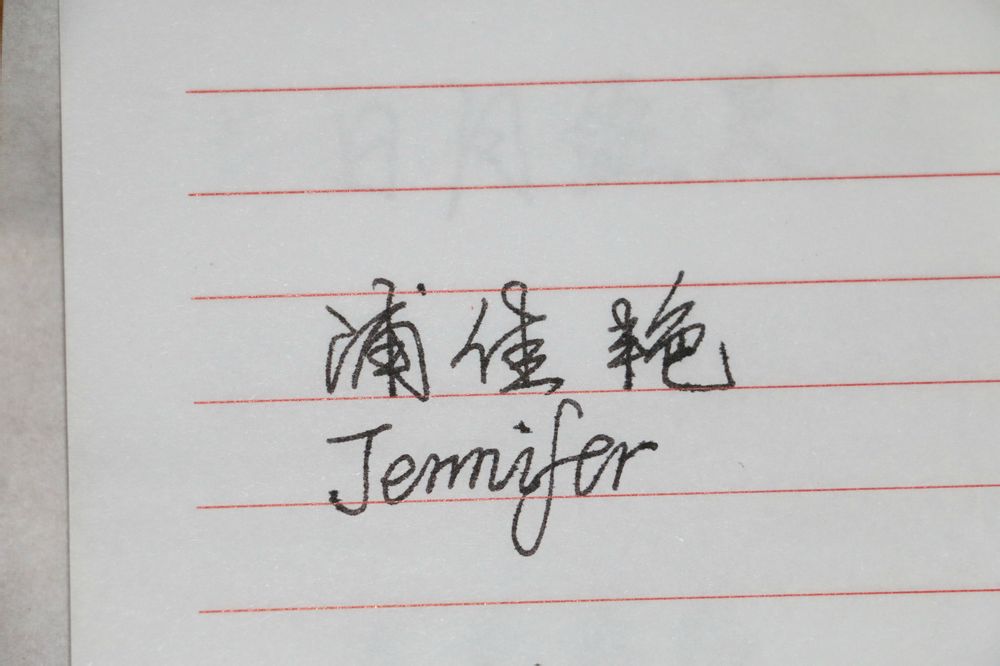 浦佳艳
Jennifer